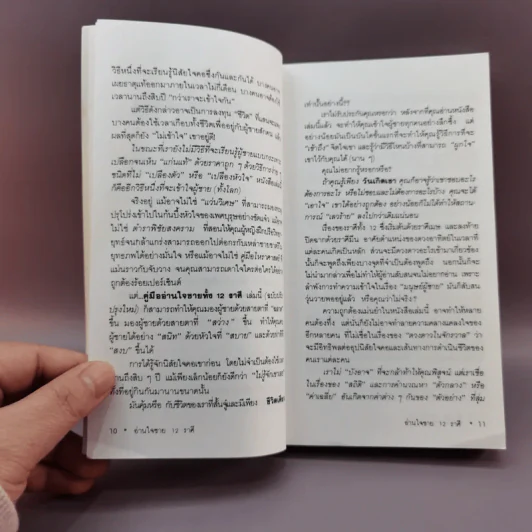 วิธีหนึ่งที่จะเรียนรู้นิสัยใจคอซึ่งกันและกันได้ บางคน
เผยธาตุแท้ออกมาภายในเวลาไม่กี่เดือน บางคนอาจต้อง
เวลานานถึงสิบปี "กว่าเราจะเข้าใจกัน"
แต่วิธีดังกล่าวอาจเป็นการลงทุน "ชีวิต"
บางคนต้องใช้เวลาเกือบทั้งชีวิตเพื่ออยู่กับผู้ชายสักคน
ผลที่สุดก็ยัง "ไม่เข้าใจ" เขาอยู่ดี!
ในขณะที่เรายังไม่มีวิธีที่จะเรียนรู้ผู้ชายแบบกะเทาะ
เปลือกจนเห็น "แก่นแท้" ด้วยราคาถูก ๆ ด้วยวิธีการง่าย ๆ
ชนิดที่ไม่ "เปลืองตัว" หรือ "เปลืองหัวใจ" หนังสือเล่มนี้
ก็คืออีกวิธีหนึ่งที่จะเข้าใจผู้ชาย (ทั้งโลก)
จริงอยู่ แม้อาจไม่ใช่ "แว่นวิเศษ" ที่สามารถมอง
ปรุโปร่งเข้าไปในก้นบึ้งหัวใจของเพศบุรุษอย่างชัดแจ้ง แม้อาจ
ไม่ใช่ ตำราพิชัยสงคราม ที่สอนให้คุณผู้หญิงฝึกปรือ
ยุทธ์จนกล้าแกร่งสามารถออกไปต่อกรกับเหล่าชายชาตรี
ยุทธภพได้อย่างมั่นใจ หรือแม้อาจไม่ใช่ คู่มือโหราศาสตร์
แม่นราวกับจับวาง จนคุณสามารถเดาใจใครต่อใครได้
ถูกต้องร้อยเปอร์เซ็นต์
แต่...คู่มืออ่านใจชายทั้ง 12 ราศี เล่มนี้ (ฉบับ
ปรุงใหม่) ก็สามารถทำให้คุณมองผู้ชายด้วยสายตาที่ "ฉลาด"
ขึ้น มองผู้ชายด้วยสายตาที่ "สว่าง" ขึ้น ทำให้คุณ
ผู้ชายได้อย่าง "สนิท" ด้วยหัวใจที่ "สบาย" และตัวที่
"สงบ" ขึ้นได้
การได้รู้จักนิสัยใจคอเขาก่อน โดยไม่จำเป็นต้องใช้
นานถึงสิบ ๆ ปี แม้เพียงเล็กน้อยก็ยังดีกว่า "ไม่รู้จักเขา
ทั้งที่อยู่กินกันมานานขนาดนั้น
มันคุ้มหรือ กับชีวิตของเราที่สั้นจู๋และมีเพียง ชีวิตเดียว
10 • อ่านใจชาย 12 ราศี
เท่านั้นอย่างนี้??
เราไม่รับประกันคุณหรอกว่า หลังจากที่คุณอ่านหนังสือ
เล่มนี้แล้ว จะทำให้คุณเข้าใจผู้ชายทุกคนอย่างลึกซึ้ง แต่
อย่างน้อยมันเป็นบันไดขั้นแรกที่จะทำให้คุณรู้วิธีการที่จะ
"เข้าถึง" จิตใจเขา และรู้ว่ามีวิธีไหนบ้างที่สามารถ "ผูกใจ"
เขาไว้กับคุณได้ (นาน ๆ)
คุณไม่อยากรู้หรอกหรือ?
ถ้าคุณรู้เพียง วันเกิดเขา คุณก็อาจรู้ว่าเขาชอบอะไร
ต้องการอะไร หรือไม่ชอบและไม่ต้องการอะไรบ้าง คุณจะได้
"เอาใจ" เขาได้อย่างถูกต้อง อย่างน้อยก็ไม่ได้ทำให้สถาน-
การณ์ "เลวร้าย" ลงไปกว่าเดิมแน่นอน
เรื่องของราศีทั้ง 12 ซึ่งเริ่มต้นด้วยราศีเมษ และลงท้าย
ปิดฉากด้วยราศีมีน อาศัยตำแหน่งของดวงอาทิตย์ในเวลาที่
แต่ละคนเกิดเป็นหลัก ส่วนจะมีดวงดาวอะไรเข้ามาเกี่ยวข้อง
นั้นก็จะพูดถึงเพียงบางจุดที่จำเป็นต้องพูดถึง นอกนั้นก็จะ
ไม่นำมากล่าวเพื่อไม่ทำให้ผู้อ่านสับสนจนไม่อยากอ่าน เพราะ
ลำพังการทำความเข้าใจในเรื่อง "มนุษย์ผู้ชาย" มันก็สับสน
วุ่นวายพออยู่แล้ว หรือคุณว่าไม่จริง?
ความถูกต้องแม่นยำในหนังสือเล่มนี้ อาจทำให้หลาย
คนต้องทึ่ง แต่มันก็ยังไม่อาจทำลายความคลางแคลงใจของ
อีกหลายคน ที่ไม่เชื่อในเรื่องของ "ดวงดาวในจักรวาล" ว่า
จะมีอิทธิพลต่ออุปนิสัยใจคอและเส้นทางการดำเนินชีวิตของ
คนเราแต่ละคน
เราไม่ "บังอาจ" ที่จะกล้าท้าให้คุณพิสูจน์ แต่เราเชื่อ
ในเรื่องของ "สถิติ" และการคำนวณหา "ตัวกลาง" หรือ
"ค่าเฉลี่ย" อันเกิดจากค่าต่าง ๆ กันของ "ตัวอย่าง" ที่สุ่ม
อ่านใจชาย 12 ราศี • 11